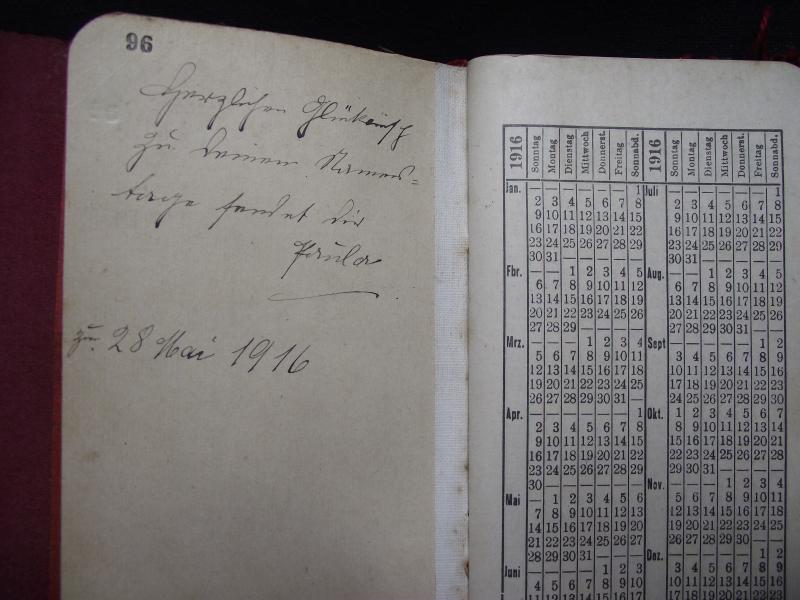 96
Herzlichen Glückwunsch
zu Deinem Namens=
tage sendet dir
Paula
zu. 28 Mai 1916
1916 Sonntag Montag Dienstag Mittwoch Donnerst. Freitag Sonnabd. 1916 Sonntag Montag Dienstag Mittwoch Donnerst. Freitag Sonnabd.
Jan. — — — — — — 1 Juli — — — — — — 1
2 3 4 5 6 7 8 2 3 4 5 6 7 8
9 10 11 12 13 14 15 9 10 11 12 13 14 15
16 17 18 19 20 21 22 16 17 18 19 20 21 22
23 24 25 26 27 28 29 23 24 25 26 27 28 29
30 31 — — — — — 30 31 — — — — —
Fbr. — — 1 2 3 4 5 Aug. — — 1 2 3 4 5
6 7 8 9 10 11 12 6 7 8 9 10 11 12
13 14 15 16 17 18 19 13 14 15 16 17 18 19
20 21 22 23 24 25 26 20 21 22 23 24 25 26
27 28 29 — — — — 27 28 29 30 31 — —
Mrz. — — — 1 2 3 4 Sept — — — — — 1 2
5 6 7 8 9 10 11 3 4 5 6 7 8 9
12 13 14 15 16 17 18 10 11 12 13 14 15 16
19 20 21 22 23 24 25 17 18 19 20 21 22 23
26 27 28 29 30 31 — 24 25 26 27 28 29 30
Apr. — — — — — — 1 Okt. 1 2 3 4 5 6 7
2 3 4 5 6 7 8 8 9 10 11 12 13 14
9 10 11 12 13 14 15 15 16 17 18 19 20 21
16 17 18 19 20 21 22 22 23 24 25 26 27 28
23 24 25 26 27 28 29 29 30 31 — — — —
30 — — — — — — Nov. — — — 1 2 3 4
Mai — 1 2 3 4 5 6 5 6 7 8 9 10 11
7 8 9 10 11 12 13 12 13 14 15 16 17 18
14 15 16 17 18 19 20 19 20 21 22 23 24 25
21 22 23 24 25 26 27 26 27 28 29 30 — —
28 29 30 31 — — — Dez. — — — — — 1 2
Juni — — — — 1 2 3 3 4 5 6 7 8 9
4 5 6 7 8 9 10 10 11 12 13 14 15 16
11 12 13 14 15 16 17 17 18 19 20 21 22 23